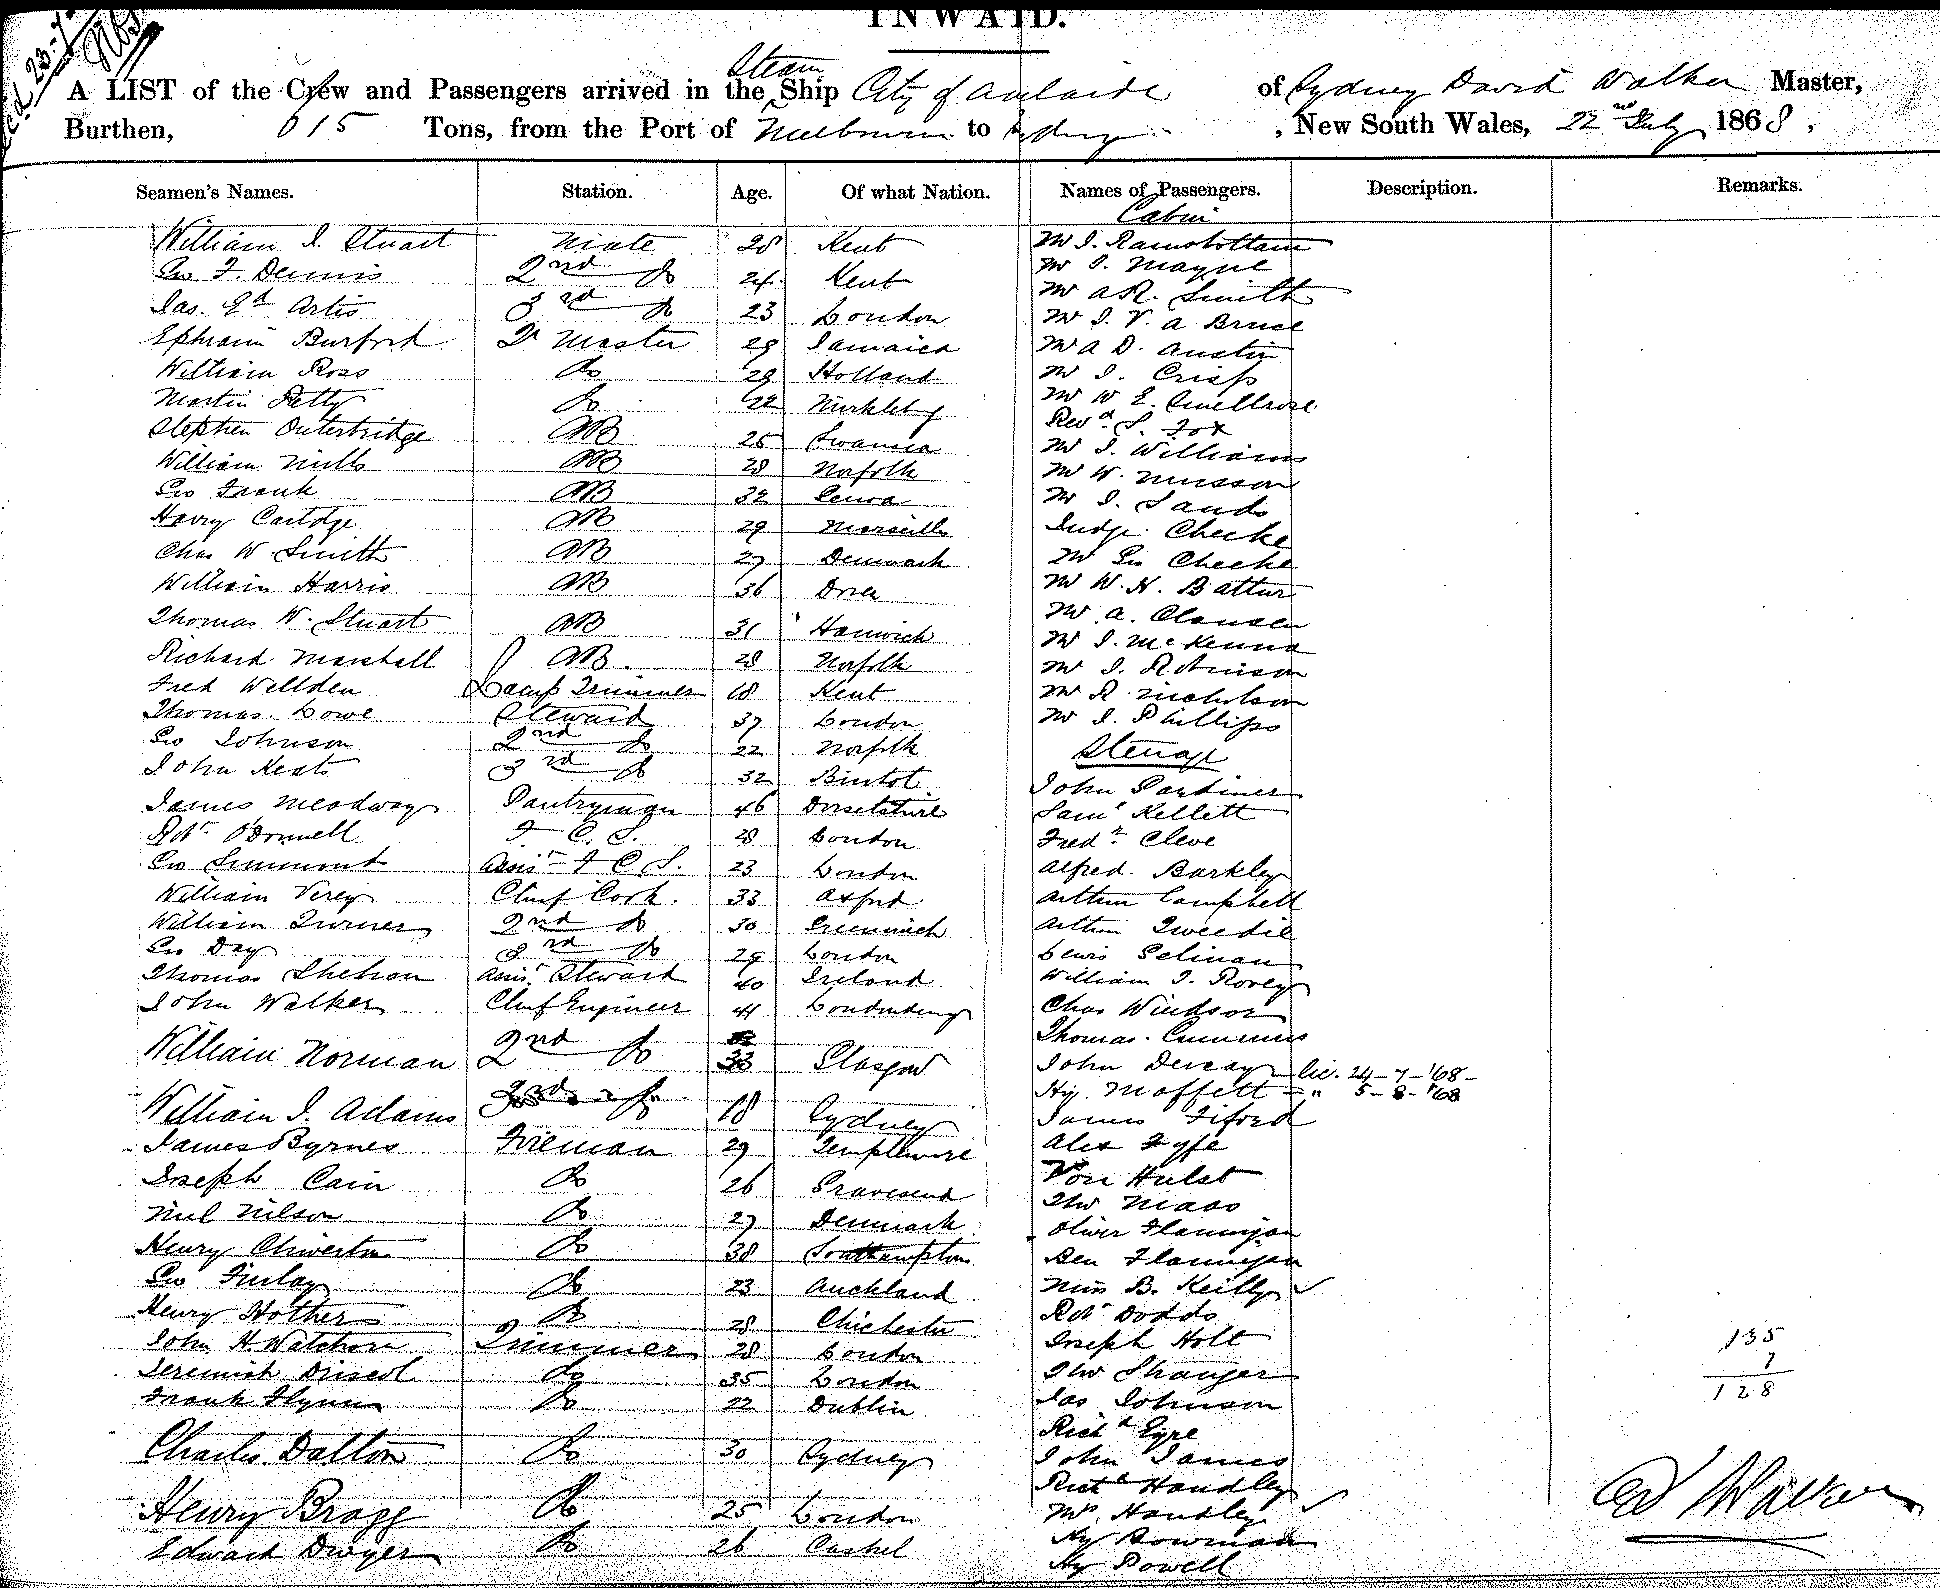 INWARD.
A LIST of the Crew and Passengers arrived in the Steam Ship City of Adelaide of Sydney David Walker Master,
Burthen, 615 Tons, from the Port of Melbourne to Sydney, New South Wales, 22nd July 1868,
Seamen's Names. Station. Age. Of what Nation. Names of Passengers. Description. Remarks.
Cabin
William J. Stuart Mate 28 Kent Mr J. Ramsbottam
Geo F. Dennis 2nd Do 24 Kent Mr J. Mayne
Jas. Ed Artis 3rd Do 23 London Mr A R. Smith
Ephraim Burford Qr Master 29 Jamaica Mr J. V. A Bruce
William Ross Do 29 Holland Mr A D. Austin
Martin Petty Do 22 Mr J. Crisp
Stephen Outerbridge AB 25 Swansea Mr W E.
William Mills AB 28 Norfolk Revd S. Fox
Geo Frank AB 32 Genoa Mr J. Williams
Harry Cartdge AB 29 Marseilles Mr W. Musson
Chas W Smith AB 27 Denmark Mr J. Sands
William Harris AB 36 Dover Judge Cheeke
Thomas W. Stuart AB 31 Harwich Mr Geo Cheeke
Richard Marshall AB. 28 Norfolk Mr W. H. Battur
Fred Wellden Lamp Trimmer 18 Kent Mr A. Clausen
Thomas Lowe Steward 37 London Mr J. McKenna
Geo Johnson 2nd Do 22 Norfolk Mr J. Robinson
John Keats 3rd Do 32 Mr R. Nicholson
James Meadway Pantryman 46 Dorsetshire Mr J. Phillips
Robt O'Donnell F. C. S. 28 London Steerage
Geo Simmont Assist F C S. 23 London John Gardiner
William Verey Chief Cook. 33 Oxford Saml Kellett
William Turner 2nd Do 30 Greenwich Fredk Cleve
Geo Day 3rd Do 29 London Alfred Barkley
Thomas Shehan Assist Steward 40 Ireland Arthur Campbell
John Walker Chief Engineer 41 Londonderry Arthur Tweedie
William Norman 2nd Do 33 Glasgow Lewis Selinan
William J. Adams 3rd Do 18 Sydney William J. Rovey
James Byrnes Fireman 29 Templemore Chas Windsor
Joseph Cain Do 26 Gravesend Thomas. Cummins
Niel Nilson Do 27 Denmark John Dewar lic. 24-7-'68-
Henry Chiverton Do 38 Southampton Hy. Moffett " 5-8-'68
Geo Finlay Do 23 Auckland James Fiford
Henry Hother Do 28 Chichester Alex Fyfe
John H. Watchorn Trimmer 28 London Von Hulst
Jeremiah Driscol Do 35 London Thos Maas
Frank Flynn Do 22 Dublin Oliver Flannigan
Charles Dalton Do 30 Sydney Ben Flannigan
Henry Bragg Do 25 London Miss B. Keilly
Edward Dwyer Do 26 Cashel Robt Dodds
Joseph Holt
Thos Shanger
Jas Johnson
Richd Eyre
John James
Richd Handley
Mrs. Handley
Hy Bowman
Hy Powell
135
7
128
Ed Walker